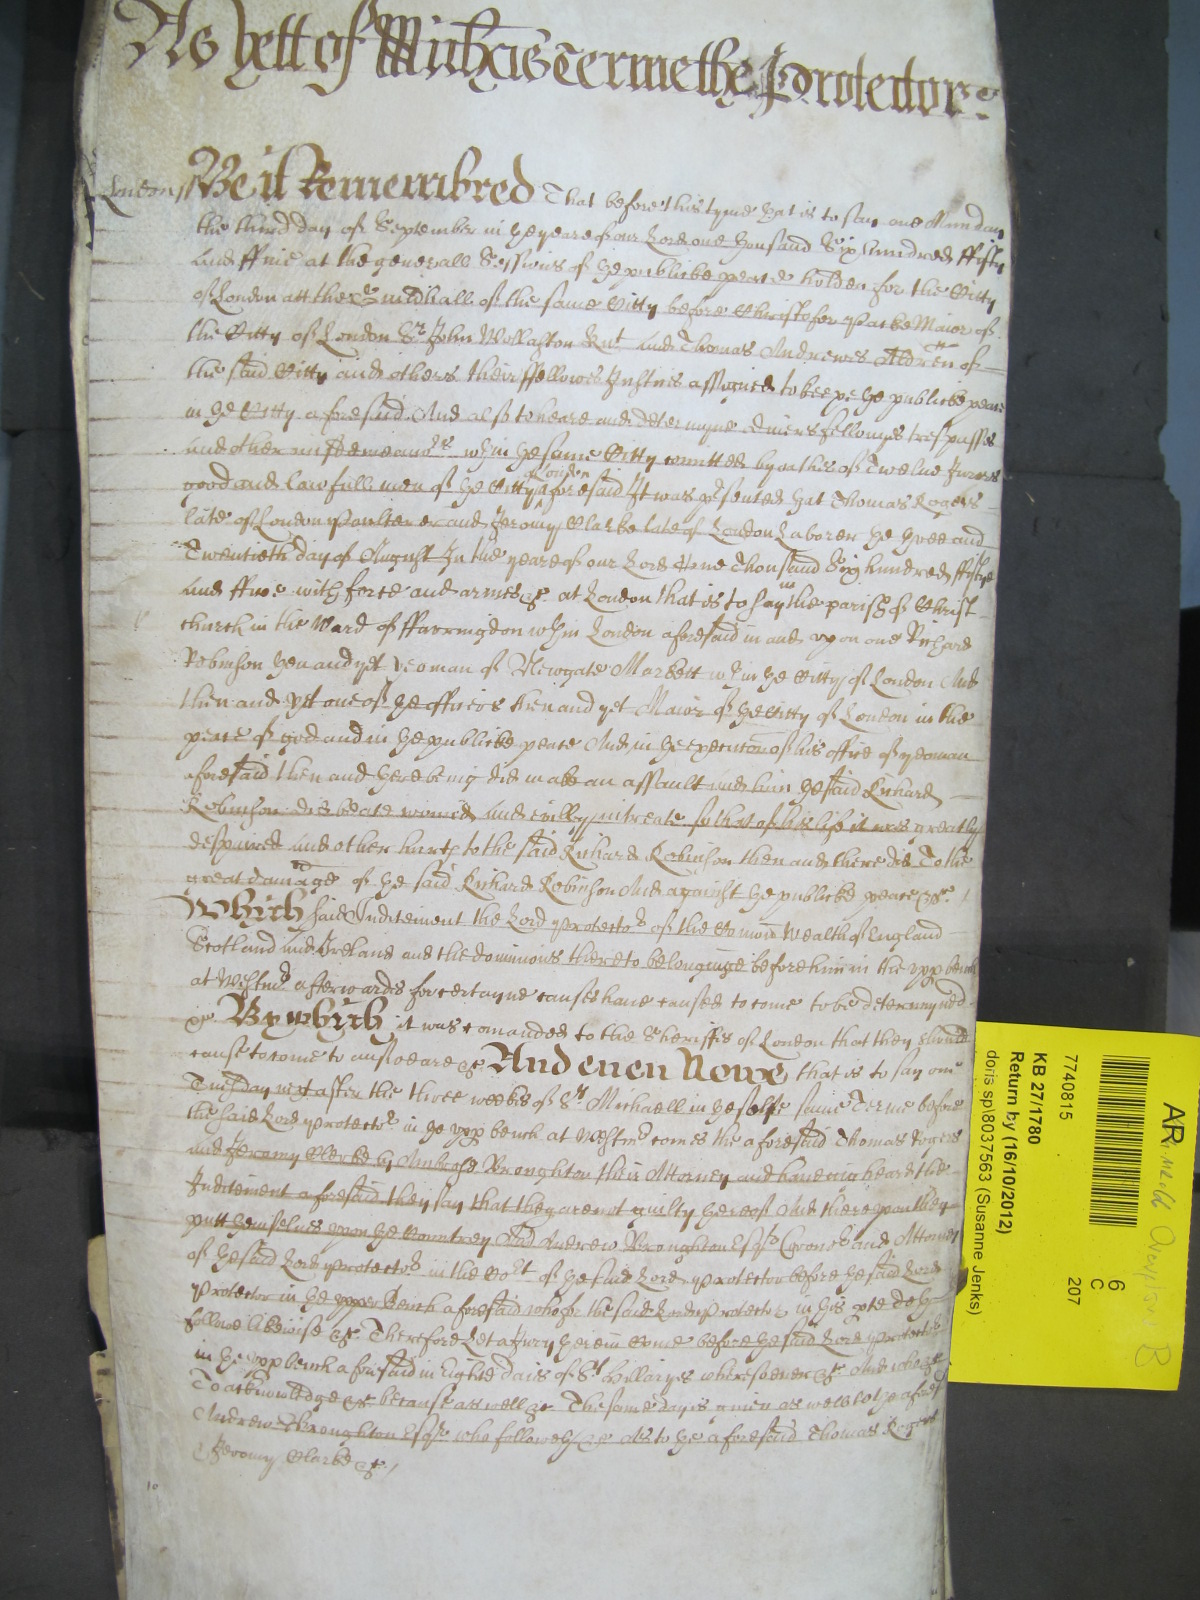 As yett of Michas Terme the Protector
London ss Be it Remembred That before this tyme yat is to say one Munday
the third day of September in ye yeare of our Lord one thousand Six hundred ffifty
and ffive at the generall Sessions of ye publicke peace holden for the Citty
of London att the Guildhall of the same Citty before Christofer Packe Maior of
the Citty of London Sr John Wollaston Knt and Thomas Andrewes Aldren of
the said Citty and others their ffellowes Justices assigned to keepe ye publicke peace
in ye Citty aforesaid And also to heare and determyne divers fellonyes trespasses
and other misdemeanors wthin ye same Citty comitted by oathes of Twelve Jurors
good and lawfull men of ye Citty of London aforesaid It was presented yat Thomas Rogers
late of London Poulterer and Jeromy Clarke late of London Laborer ye three and
Twentieth day of August In the yeare of our Lord One Thousand Six hundred ffiftye
and ffive with force and armes &c at London that is to say in the parish of Christ
church in the Ward of ffarringdon wthin London aforesaid in and upon one Richard
Robinson then and yet yeoman of Newgate Markett wthin ye Citty of London And
then and yet one of ye officers then and yet Maior of ye Citty of London in the
peace of god and in ye publicke peace And in ye execution of his office of yeoman
aforesaid then and there being did make an assault and him ye said Richard
Robinson did beate wound and evilly intreate so that of his life it was greatly
despaired and other harmes to the said Richard Robinson then and there did To the
great damage of ye said Richard Robinson And against ye publicke peace &c
Which said Inditement the Lord Protector of the Comon Wealth of England
Scotland and Ireland and the dominions thereto belonginge before him in the upp bench
at Westmr afterwards for certayne causes have caused to come to be determyned
&c By which it was comanded to the Sheriffs of London that they should
cause to come to answeare &c And even Nowe that is to say one
Tuesday next after the three weekes of St Michaell in ye selfe same Terme before
the said Lord Protector in ye upp bench at Westmr comes the aforesaid Thomas Rogers
and Jeromy Clarke by Ambrose Broughton their Attorney and haveing heard the
Inditement aforesaid they say that they are not guilty thereof And thereupon they
putt themselves upon ye Countrey And Andrew Broughton Esqr Coroner and Attorney
of ye said Lord Protector in the Cort of ye said Lord Protector before ye said Lord
Protector in ye upper Bench aforesaid who for the said Lord Protector in his pte doth
followe likewise &c Therefore Let a Jury therein come before ye said Lord Protector
in ye upp bench aforesaid in Eight daies of St Hillary wheresoever &c And who &c
To acknowledge &c because as well &c The same day is given as well to ye aforesd
Andrew Broughton Esqr who followeth &c As to ye aforesaid Thomas Rogers
Jeromy Clarke &c
10
AR
6
C
207
7740815
KB 27/1780
Return by (16/10/2012)
doris sp\8037563 (Susanne Jenks)